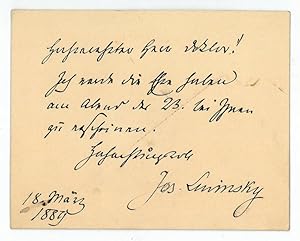 Hochgeehrter Herr Doktor!
Ich werde die Ehre haben
am Abend des 23. bei Ihnen
zu erscheinen.
Hochachtungsvoll
Jos. Lewinsky
18. März
1889